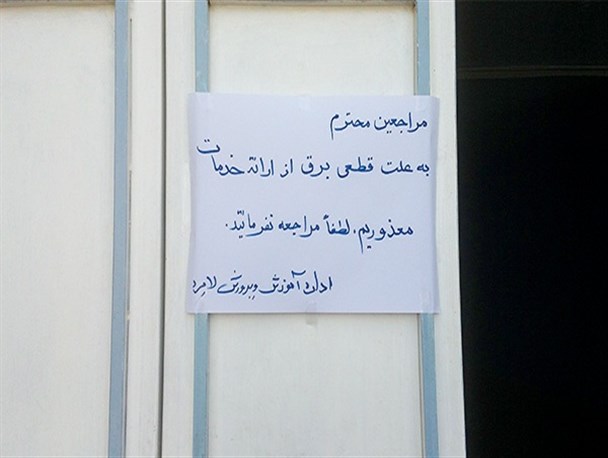 مراجعین محترم
به علت قطعی برق از ارائه خدمات
معذوریم. لطفاً مراجعه نفرمائید.
اداره آموزش و پرورش لامرد